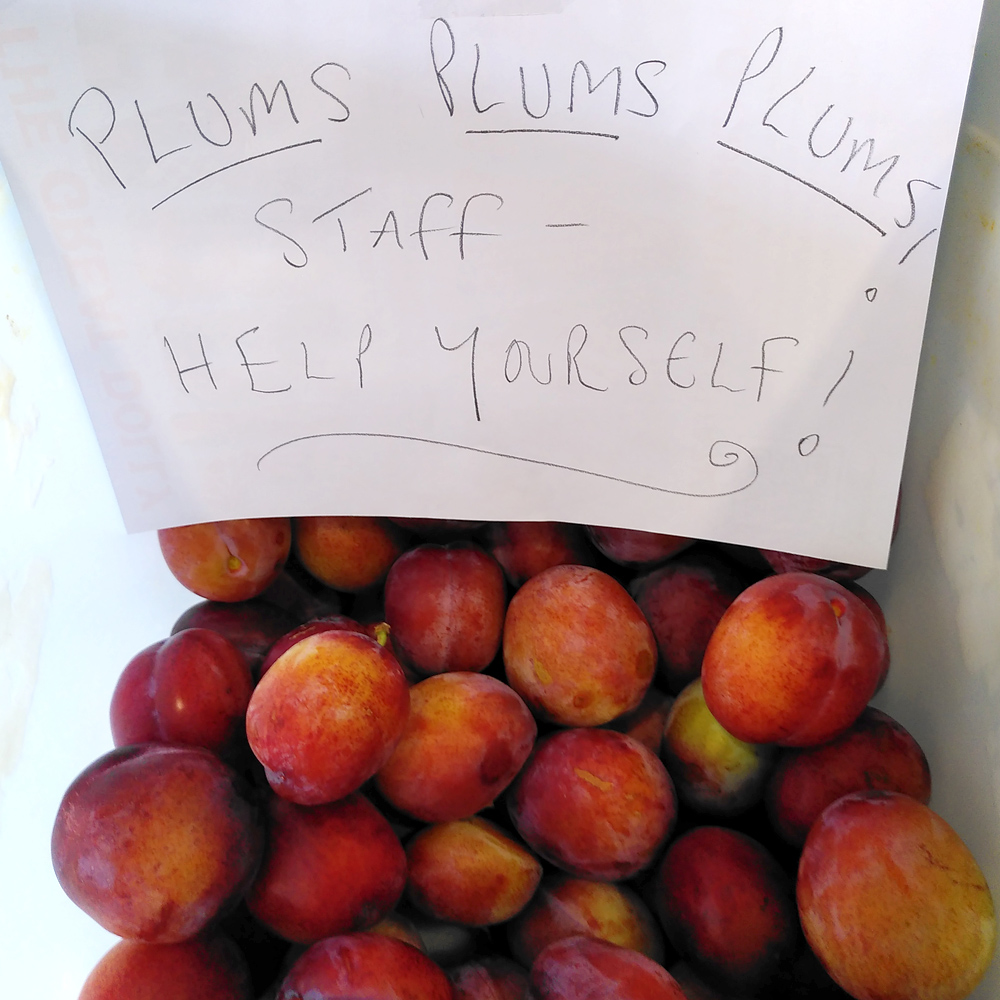 PLUMS PLUMS PLUMS!
STAFF -
HELP YOURSELF!